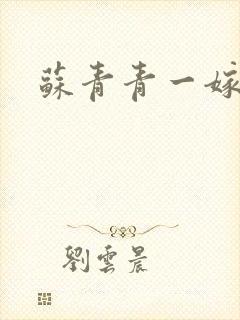 蘇青青一嫁
劉雲晨